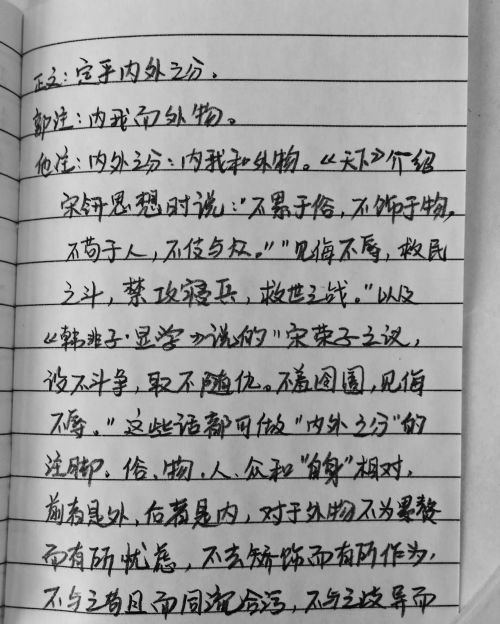 正文：定乎内外之分。
郭注：内我而外物。
他注：内外之分：内我和外物。《天下》介绍
宋钘思想时说：“不累于俗，不饰于物，
不苟于人，不伎与众。”“见侮不辱，救民
之斗，禁攻寝兵，救世之战。”以及
《韩非子·显学》说的“宋荣子之议，
设不斗争，取不随仇。不羞囹圄，见侮
不辱。”这些话都可做“内外之分”的
注脚、俗、物、人、众和“自身”相对，
前者是外，后者是内，对于外物不为累赘
而有所忧虑，不去矫饰而有所作为，
不与之苟且而同流合污，不与之歧异而